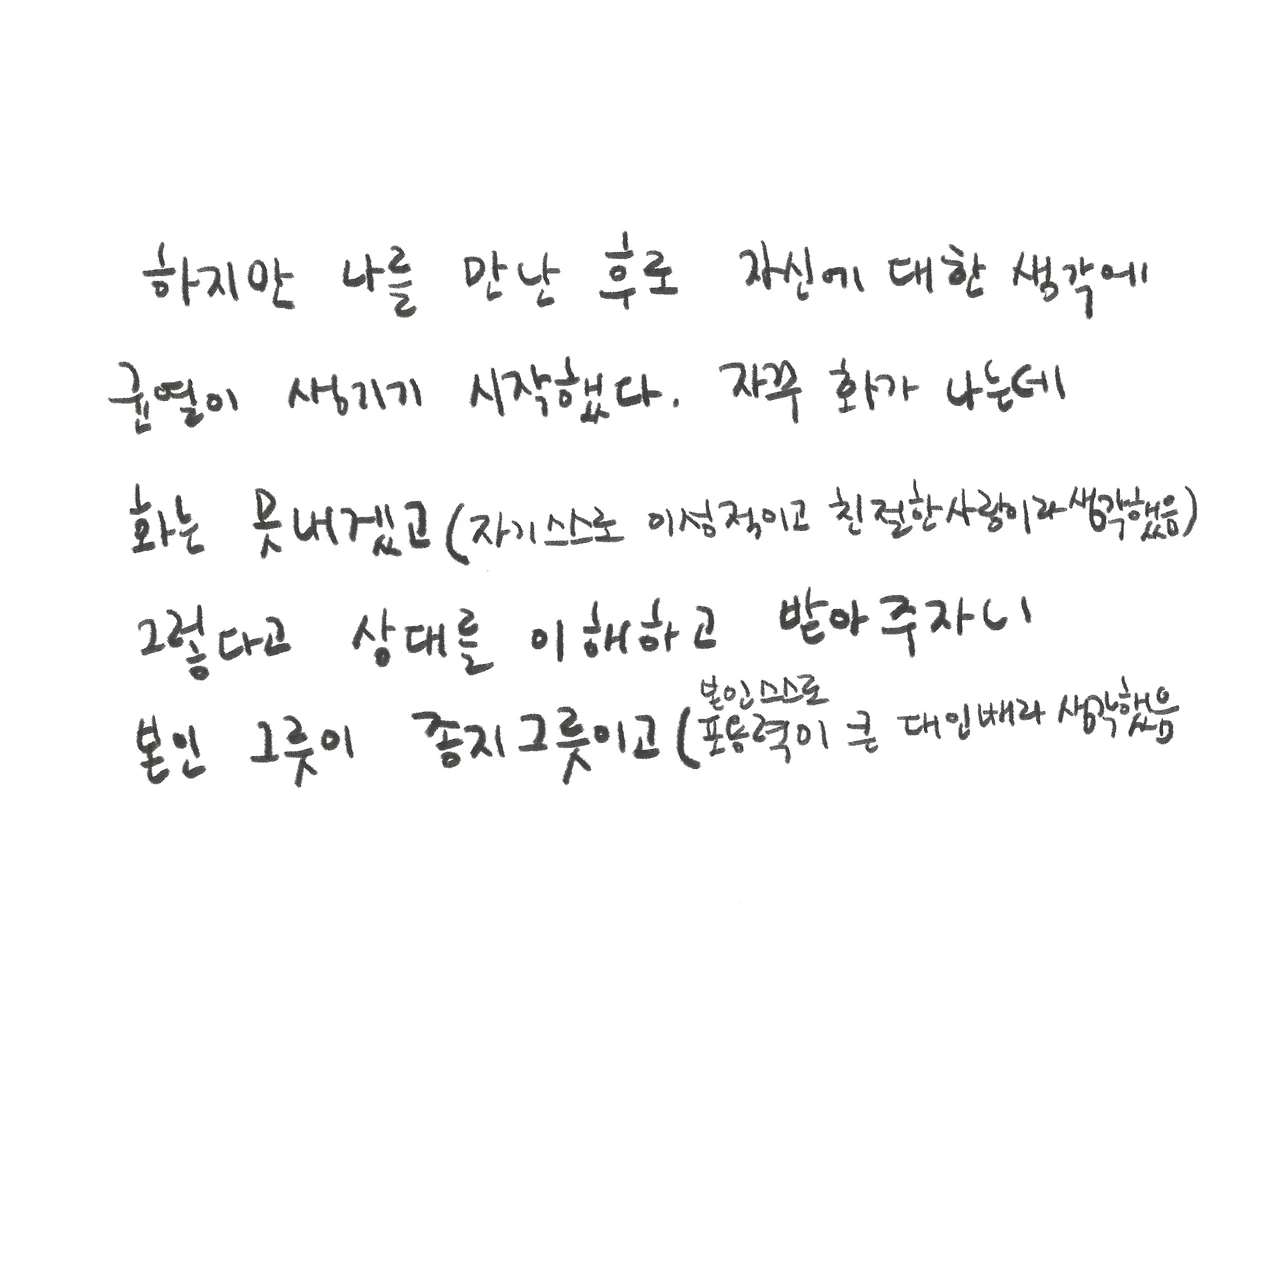 하지만 나를 만난 후로 자신에 대한 생각에
균열이 생기기 시작했다. 자꾸 화가 나는데
화는 못내겠고 (자기스스로 이성적이고 친절한사람이라생각했음)
그렇다고 상대를 이해하고 받아주자니
본인 그릇이 종지그릇이고 (본인스스로
포용력이 큰 대인배라 생각했음